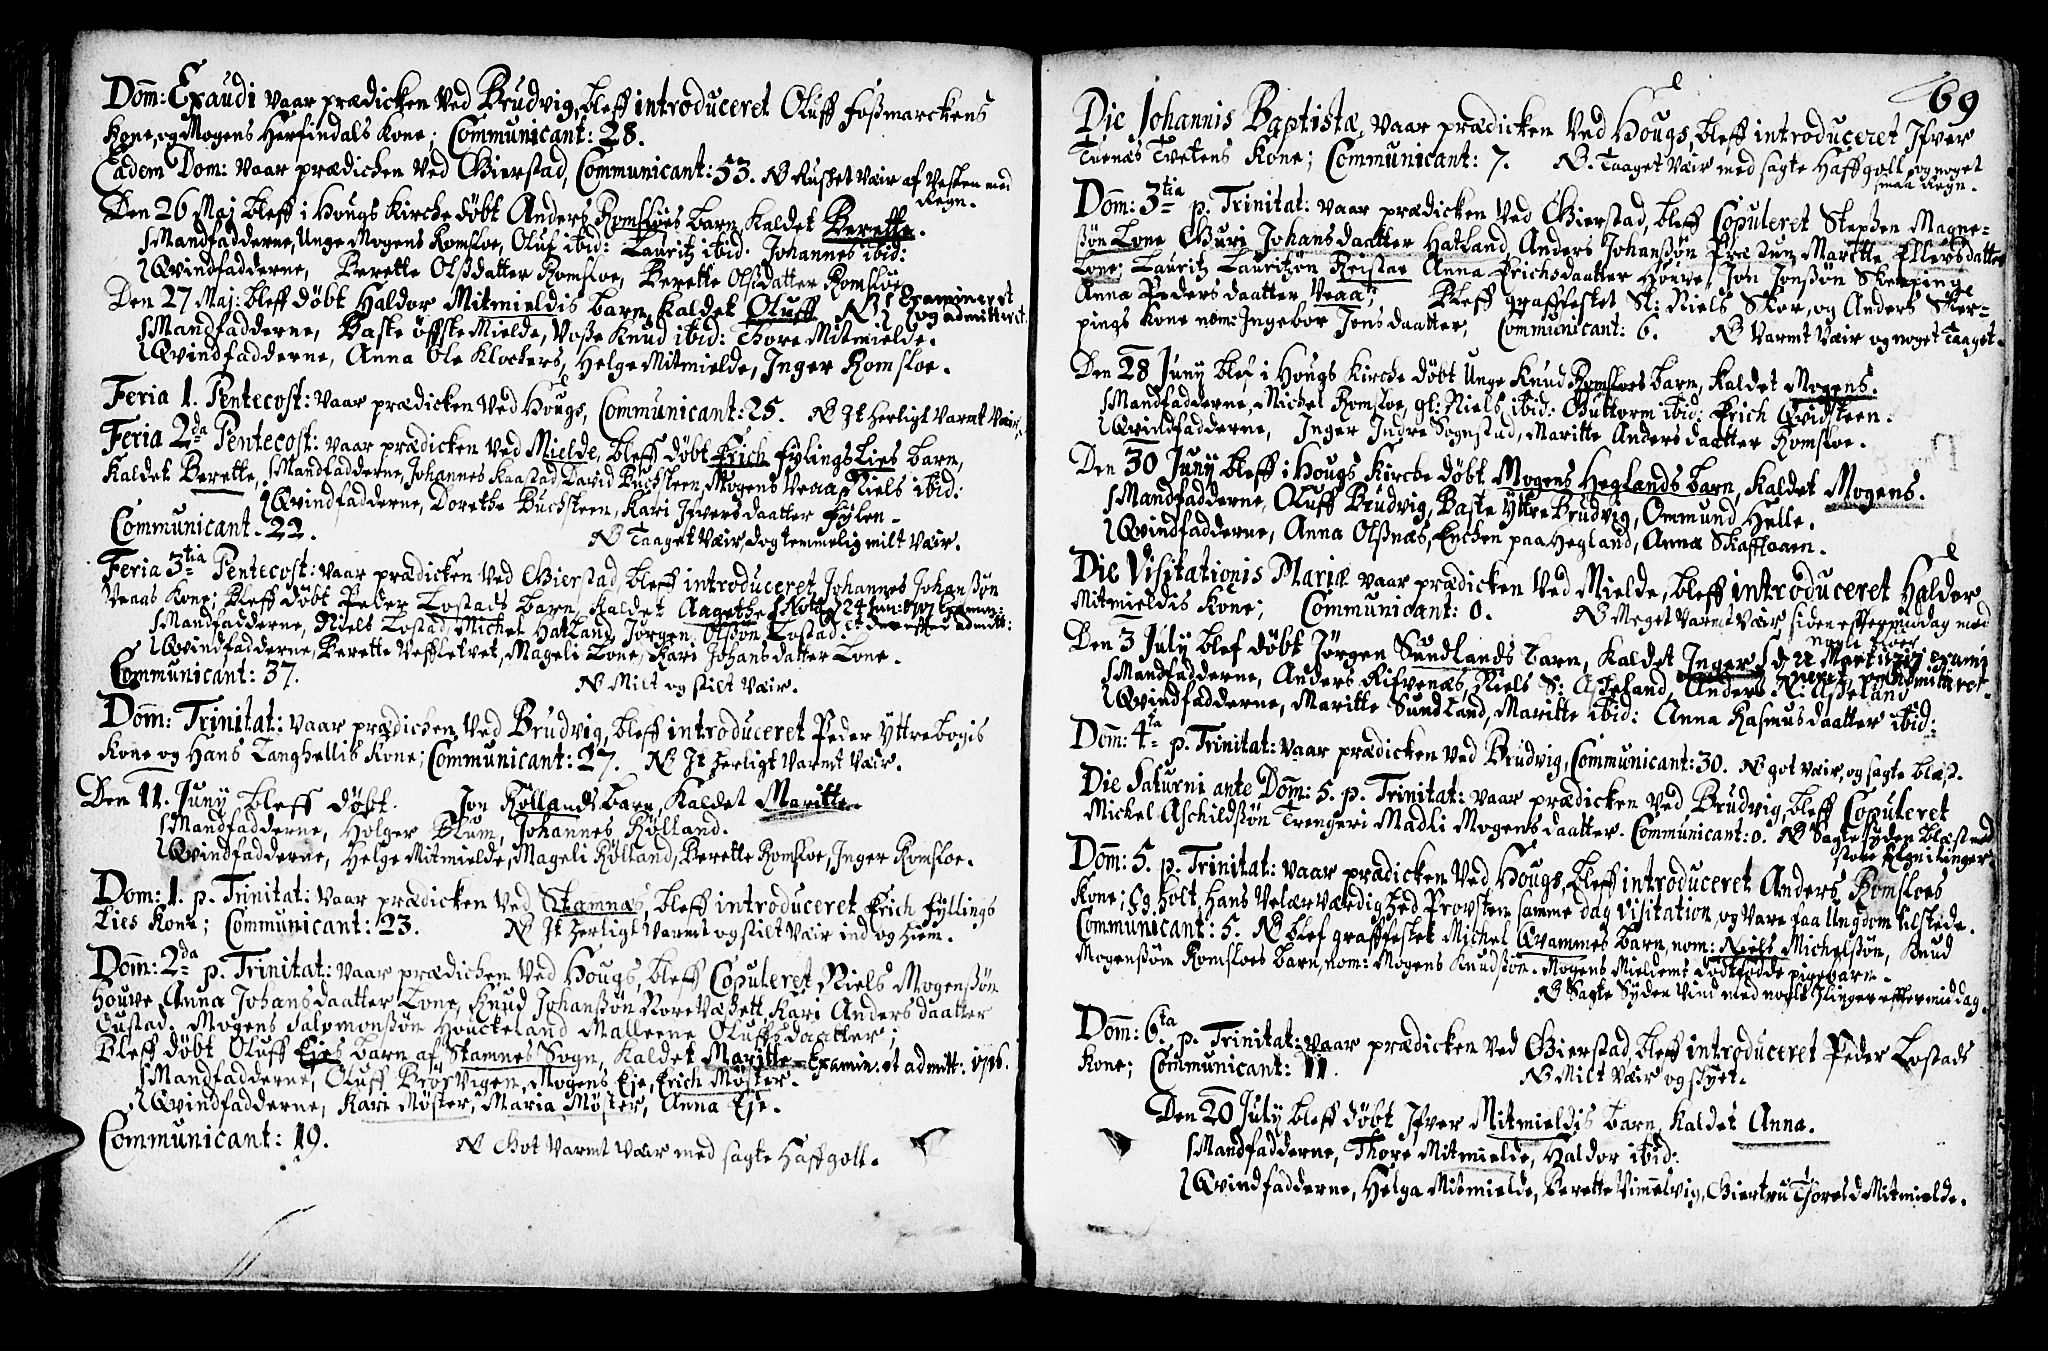 Dom: Exaudi vaar prædicken ved Brudvig, bleff introduceret Oluff Fossmarckens
Kone, og Mogens Herfindals Kone; Communicant: 28.
Eadem Dom: vaar prædicken ved Gierstad, Communicant: 53. NB Rusket Væir af Vesten med
Regn.
Den 26 Maj bleff i Hougs Kircke døbt Anders Romsloes barn, Kaldet Berette.
Mandfadderne, Unge Mogens Romsloe, Oluf ibid: Lauritz ibid. Johannes ibid:
Qvindfadderne, Berette Olsdatter Romsloe, Berette Olsdatter Romsloe.
Den 27 Maj: bleff døbt Haldor Mitmieldis barn, Kaldet Oluff NB Examineret
og admitteret.
Mandfadderne, Baste øffste Mielde, Vosse Knud ibid: Thore Mitmielde.
Qvindfadderne, Anna Ole Klockers, Helge Mitmielde, Inger Romsloe.
Feria 1. Pentecost: vaar prædicken ved Hougs, Communicant: 25. NB It herligt varmt Væir.
Feria 2da Pentecost: vaar prædicken ved Mielde, bleff døbt Erich Fylings Lies barn,
Kaldet Berette, Mandfadderne, Johannes Kaastad, David Buchsteen, Mogens Veraas, Niels ibid:
Qvindfadderne, Dorethe Buchsteen, Kari Ifversdaatter Fylen.
Communicant. 22. NB Taaget Væir, dog temmelig milt Væir.
Feria 3tia Pentecost: vaar prædicken ved Gierstad, bleff introduceret Johannes Johanssøn
Veraas Kone; Bleff døbt Peder Lostads barn, Kaldet Aagethe
Mandfadderne, Niels Lostad, Michel Hatland, Jørgen Olssøn Lostad.
Qvindfadderne, Berette Veffletvet, Mageli Lone, Kari Johansdatter Lone.
Communicant: 37. NB Milt og stilt Væir.
Dom: Trinitat: vaar prædicken ved Brudvig, bleff introduceret Peder Yttrebogis
Kone og Hans Langhellis Kone; Communicant: 27. NB It herligt varmt Væir.
Den 11. Juny bleff døbt Jon Røllands barn, Kaldet Maritte.
Mandfadderne, Holger Blum, Johannes Rølland.
Qvindfadderne, Helge Mitmielde, Mageli Rølland, Berette Romsloe, Inger Romsloe.
Dom: 1. p. Trinitat: vaar prædicken ved Stamnæs, bleff introduceret Erich Fyllings
Lies Kone; Communicant: 23. NB It herligt varmt og stilt Væir ind og hiem.
Dom: 2da p. Trinitat: vaar prædicken ved Hougs, bleff Copuleret Niels Mogenssøn
Houve Anna Johansdaatter Lone, Knud Johanssøn Norevæsett, Kari Andersdaatter
Eustad. Mogens Salomonssøn Houckeland Malleene Oluffsdaatter;
Bleff døbt Oluff Eies barn af Stamnes Sogn, Kaldet Maritte. Examin: et admitt: 1726.
Mandfadderne, Oluff Brørvigen, Mogens Eje, Erich Møster.
Qvindfadderne, Kari Møster, Maria Møster, Anna Eje.
Communicant: 19. NB Got varmt Væir med sagte Haffgoll.
69
Die Johannis Baptistæ, vaar prædicken ved Hougs, bleff introduceret Ifver
Tuenæs Tvetens Kone; Communicant: 7. NB. Taaget Væir med sagte Haffgoll, og noget
smaa Regn.
Dom: 3tia p. Trinitat: vaar prædicken ved Gierstad, bleff Copuleret Stephen Magne-
søn Lone Guri Johansdaatter Hatland, Anders Johanssøn Maritte Ellersdatter
Lone; Lauritz Lauritzøn Reistae Anna Erichsdaatter Houve, Jon Jonssøn Skerpinge
Anna Pedersdaatter Veaa; Bleff graffestet Sl: Niels Skor, og Anders Sker-
pings Kone nom: Ingebor Jonsdaatter, Communicant: 6. NB Varmt Væir og noget Taaget.
Den 28 Juny blef i Hougs Kircke døbt Unge Knud Romsloes barn, Kaldet Mogens.
Mandfadderne, Michel Romsloe, gl: Niels ibid: Guttorm ibid: Erich Qvidsteen.
Qvindfadderne, Inger Indre Sognstad, Maritte Andersdaatter Romsloe.
Den 30 Juny bleff i Hougs Kircke døbt Mogens Heglands barn, Kaldet Mogens.
Mandfadderne, Oluff Brudvig, Baste Yttre Brudvig, Ommund Helle.
Qvindfadderne, Anna Olsnæs, Enchen paa Hegland, Anna Skafflaaen.
Die Visitationis Mariæ vaar prædicken ved Mielde, bleff introduceret Haldor
Mitmieldis Kone; Communicant: 0. NB Meget varmt Vær siden effermiddag med
nogle Ilver
Den 3 July blef døbt Jørgen Sundlands barn, Kaldet Inger
Mandfadderne, Anders Rifvenæs, Niels S: Askeland, Anders N: Askeland
Qvindfadderne, Maritte Sundland, Maritte ibid: Anna Rasmusdaatter ibid:
Dom: 4ta p. Trinitat: vaar prædicken ved Brudvig, Communicant: 30. NB got Væir, og sagte blæst.
Die Saturni ante Dom: 5. p. Trinitat: vaar prædicken ved Brudvig, bleff Copuleret
Mickel Aschildssøn Trengeri Madli Mogensdaatter. Communicant: 0. NB Sagte Syden blæst med
store Regnilinger
Dom: 5. p. Trinitat: vaar prædicken ved Hougs, bleff introduceret Anders Romsloes
Kone; Og holt, Hans Velærværdighed Provsten samme dag Visitation, og vare faa Ungdom tilstede.
Communicant: 5. NB blef graffestet Michel Qvammes barn, nom: Niels Michelssøn, Knud
Mogenssøn Romsloes barn, nom: Mogens Knudssøn. Mogens Mieldems dødfødde pigebarn.
NB Sagte Syden Vind med nogle Ilinger effermiddag.
Dom: 6ta p. Trinitat: vaar prædicken ved Gierstad, bleff introduceret Peder Lostads
Kone; Communicant: 11. NB Milt Væir og skyet.
Den 20 July bleff døbt Ifver Mitmieldis barn, Kaldet Anna.
Mandfadderne, Thore Mitmielde, Haldor ibid:
Qvindfadderne, Helga Mitmielde, Berette Vimmelvig, Giertru Tjorsld Mitmielde.